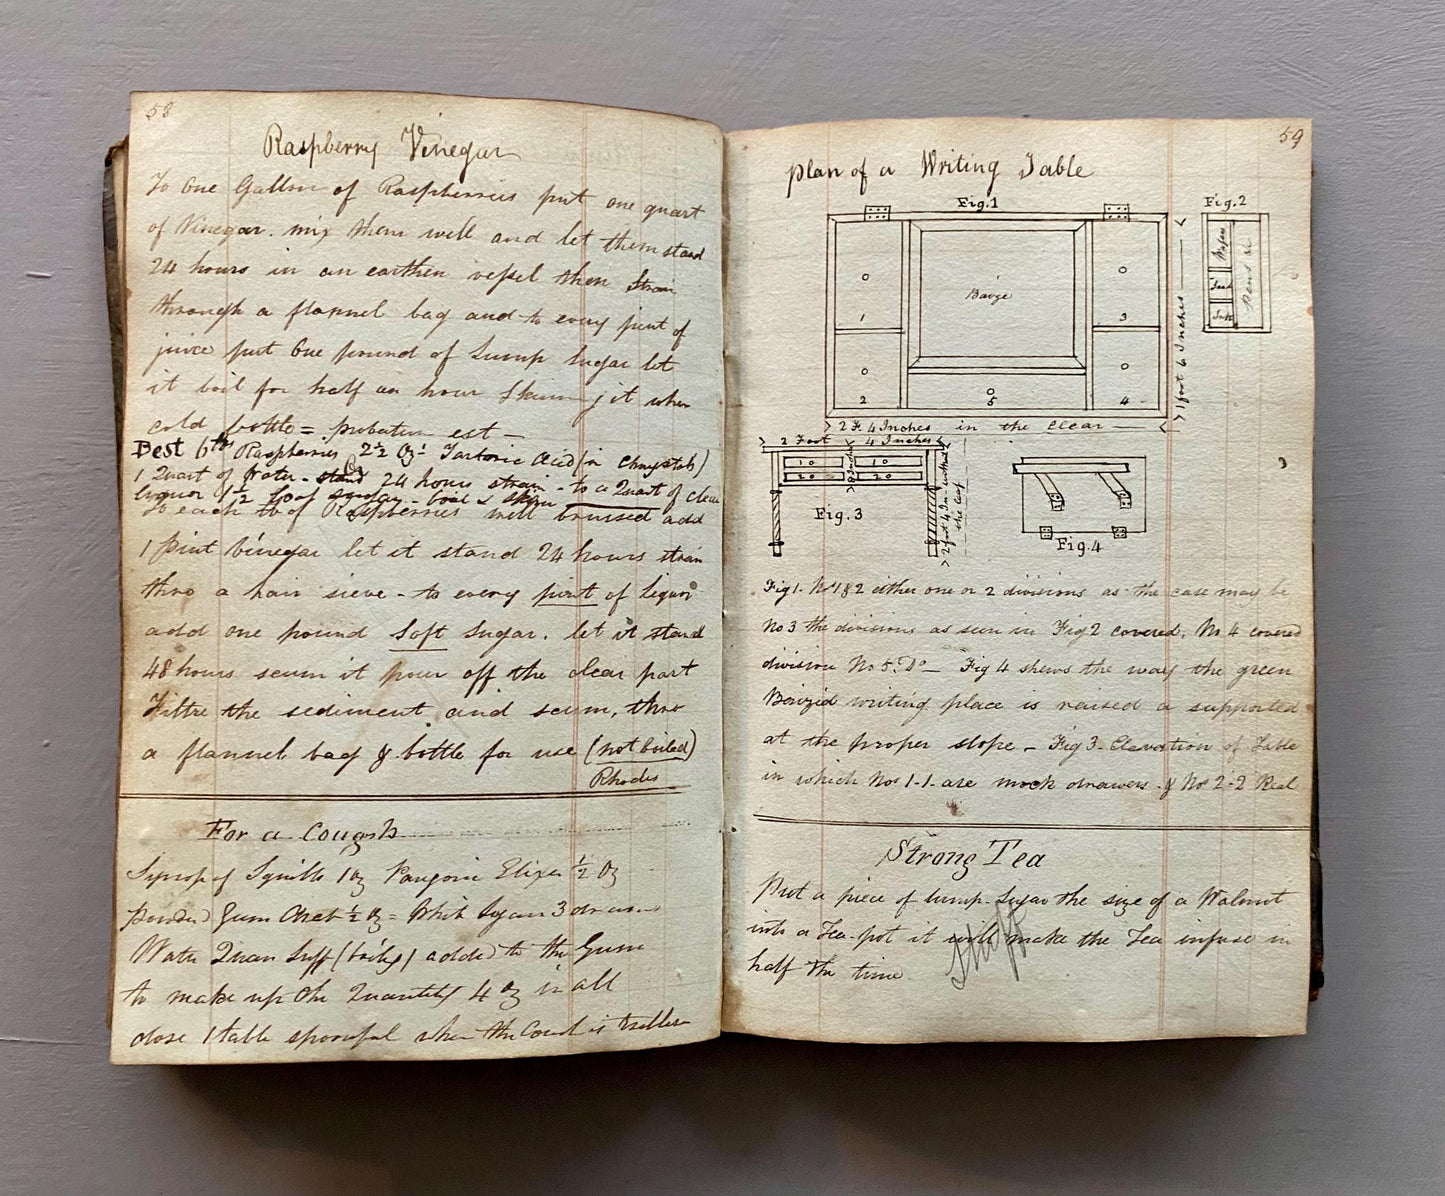 58
Raspberry Vinegar
To One Gallon of Raspberries put one quart
of Vinegar. mix them well and let them stand
24 hours in an earthen vessel then Strain
through a flannel bag and to every pint of
juice put One pound of Lump Sugar let
it boil for half an hour Skimming it when
cold bottle = probatum est —
Best 6 lbs Raspberries 2½ Oz Tartaric Acid (in Chrystals)
1 Quart of Water - stand 24 hours strain - to a Quart of clear
liquor 1½ Loaf Sugar - boil & skim
To each lb of Raspberries well bruised add
1 pint vinegar let it stand 24 hours strain
thro a hair sieve - to every pint of liquor
add one pound Soft Sugar. let it stand
48 hours scum it pour off the clear part
Filtre the sediment and scum, thro
a flannel bag & bottle for use (not boiled)
Rhodes
For a Cough
Syrop of Squills 1 oz Paregoric Elixir ½ Oz
powder'd Gum Arab ½ oz = White Sugar 3 drams
Water Quan Suff (boiling) added to the Gum
to make up the Quantity 4 oz in all
dose 1 table spoonful when the Cough is troublesome
59
plan of a Writing Table
Fig.1
Fig.2
Baize
1
2
3
4
5
Wafers
Sand
Ink
Pens &c
1 foot 6 Inches
2 Ft 4 Inches in the clear
2 Foot 4 Inches
8 Inches
1 o
1 o
2 o
2 o
2 foot 4 In without
the leaf
Fig.3
Fig.4
Fig 1. No 1 & 2 either one or 2 divisions as the case may be
No 3 the divisions as seen in Fig 2 covered. No 4 covered
division No 5. Do — Fig 4 shews the way the green
Baized writing place is raised & supported
at the proper slope - Fig 3 - Elevation of Table
in which Nos 1-1- are mock drawers - & Nos 2-2 Real
Strong Tea
Put a piece of lump-Sugar the size of a Walnut
into a Tea-pot it will make the Tea infuse in
half the time
Stuff